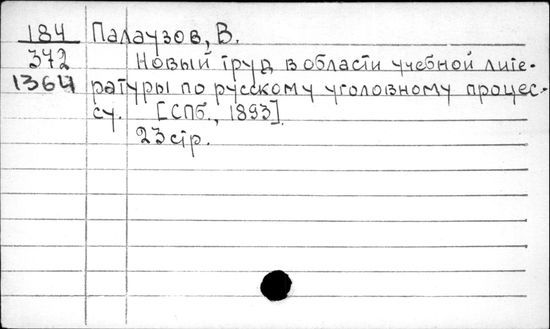 184 Палаузов, В.
372 Новый труд в области учебной лите-
1364 ратуры по русскому уголовному процес-
су. [СПб., 1893]
23 стр.